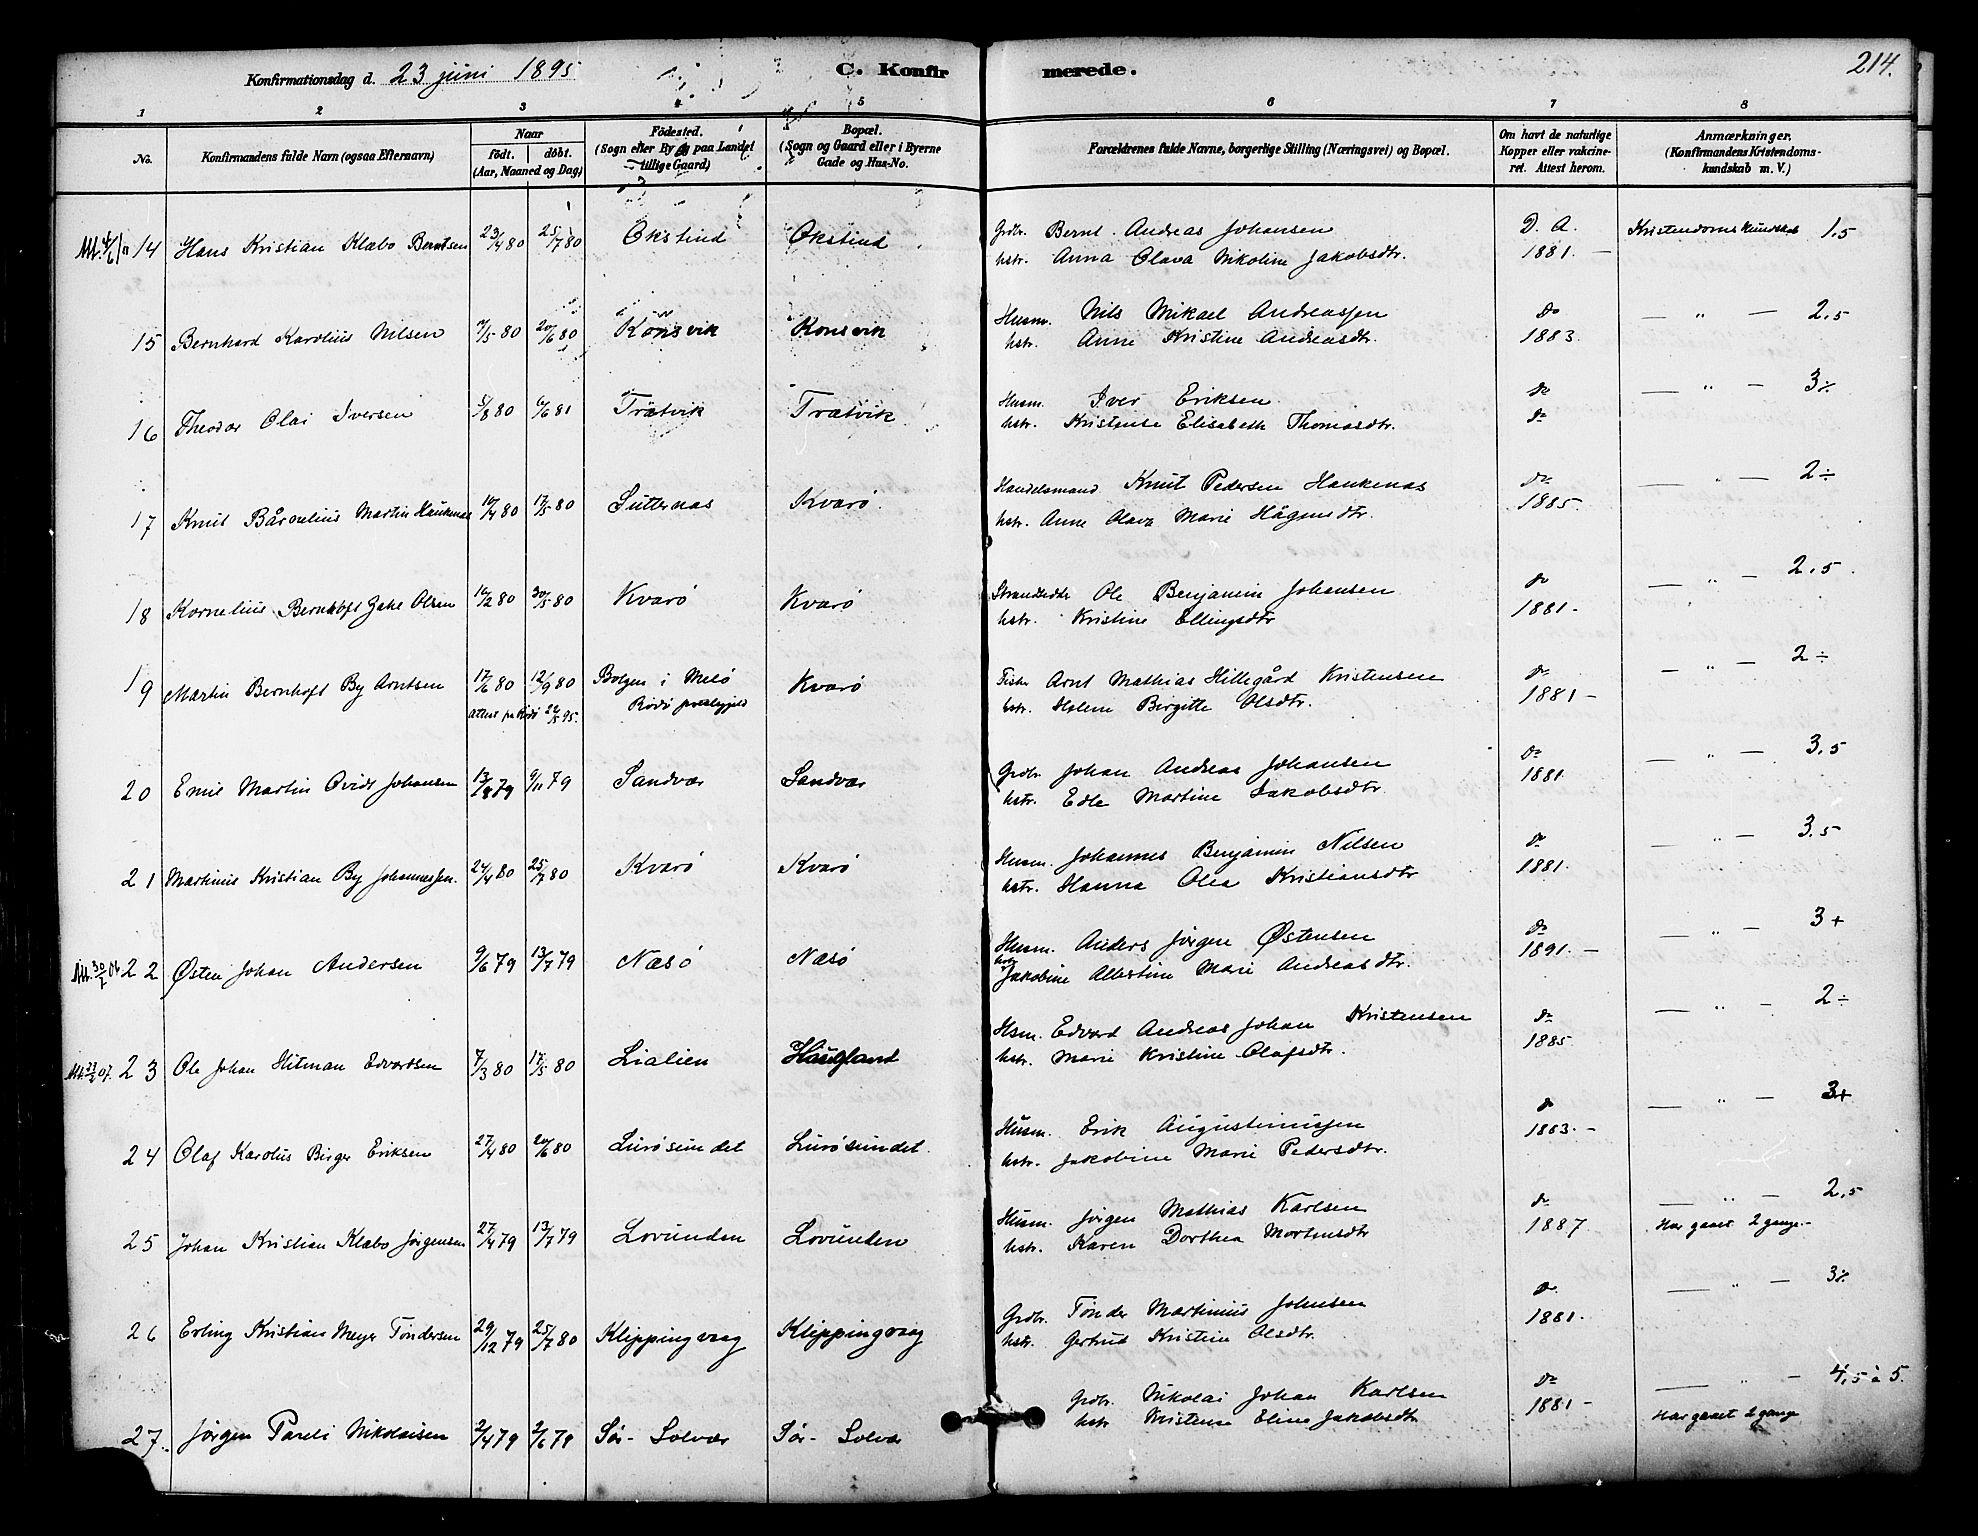 Konfirmationsdag d. 23 juni 1895
C. Konfirmerede.
214.
1 2 3 4 5 6 7 8
No. Konfirmandens fulde Navn (ogsaa Efternavn) Naar født. døbt. (Aar, Maaned og Dag) Fødested. (Sogn efter By og paa Landet tillige Gaard) Bopæl. (Sogn og Gaard eller i Byerne Gade og Hus-No. Forældrenes fulde Navne, borgerlige Stilling (Næringsvei) og Bopæl. Om havt de naturlige Kopper eller vakcineret. Attest herom. Anmærkninger. (Konfirmandens Kristendomskundskab m. V.)
14 Hans Kristian Klæbo Berntsen 23/4 80 25/7 80 Okstind Okstind Grdbr. Bernt Andreas Johansen D. A. Kristendomskundskab 1,5
hstr. Anna Olava Nikoline Jakobsdtr. 1881.-
15 Bernhard Karolius Nilsen /5 80 20/6 80 Konsvik Konsvik Husm. Nils Mikael Andreassen do — „ — 2,5
hstr. Anne Kristine Andreasdtr. 1883.
16 Theodor Olai Iversen 5/8 80 6/6 81 Trætvik Trætvik Husm. Iver Eriksen do — „ — 3%
hstr. Kristense Elisabeth Thomasdtr. do
17 Knut Martin Haukenæs 16/4 80 17/5 80 Sutternæs Kvarø Handelsmand Knut Pedersen Haukenæs do — „ — 2÷
hstr. Anne Olava Marie Hågensdtr. 1885.
18 Kornelius Bernhoft Olsen 16/2 80 30/5 80 Kvarø Kvarø Strandsidder Ole Benjamin Johansen do — „ — 2,5
hstr. Kristine Ellingsdtr 1881.-
19 Martin Bernhoft By Arntsen 17/6 80 12/9 80 Bolgen i Melø Kvarø Fisker Arnt Mathias Hillegård Kristensen do — „ — 2÷
Attest pr Rødø 95. Rødø præstegjeld hstr. Helene Birgitte Olsdtr. 1881-
20 Emil Martin Ovidi Johansen 13/8 79 9/11 79 Sandvær Sandvær Grdbr. Johan Andreas Johansen do — „ — 3,5
hstr. Edle Martine Jakobsdtr. 1881.
21 Martinus Kristian By Johannessen. 24/4 80 25/7 80 Kvarø Kvarø Husm. Johannes Benjamin Nilsen do „ — 3.5
hstr. Hanna Olea Kristiansdtr 1881.
22 Østen Johan Andersen 9/6 79 13/7 79 Næsø Næsø Husm. Anders Jørgen Østensen do — „ — 3+
hstr. Jakobine Albertine Marie Andreasdtr. 1891.-
23 Ole Johan Hitman Edvardsen 7/3 80 17/5 80 Lialien Haugland Hsm. Edvard Andreas Johan Kristensen do — „ — 2÷
hstr. Marie Kristine Olafsdtr. 1885.
24 Olaf Karolus Birger Eriksen 27/4 80 20/6 80 Lurøsundet Lurøsundet. Husm. Erik Augustinussen do — „ — 3+
hstr. Jakobine Marie Pedersdtr. 1883.-
25 Johan Kristian Klæbo Jørgensen 27/4 79 13/7 79 Lovunden Lovunden Husm. Jørgen Mathias Karlsen do — „ — 2,5
hstr. Karen Dorthea Mortensdtr 1887. Har gaaet 2 gange.-
26 Erling Kristian Meyer Tøndersen 29/12 79 25/7 80 Klippingvaag Klippingvaag Grdbr. Tønder Martinus Johnsen do — „ — 3%
hstr. Gertrud Kristine Olsdtr. 1881.
27. Jørgen Pareli Nikolaisen 2/4 79 2/6 79 Sør-Solvær Sør-Solvær Grdbr. Nikolai Johan Karlsen do — „ — 4,5 à 5.
hstr Kristense Eline Jakobsdtr 1881- Har gaaet 2 gange